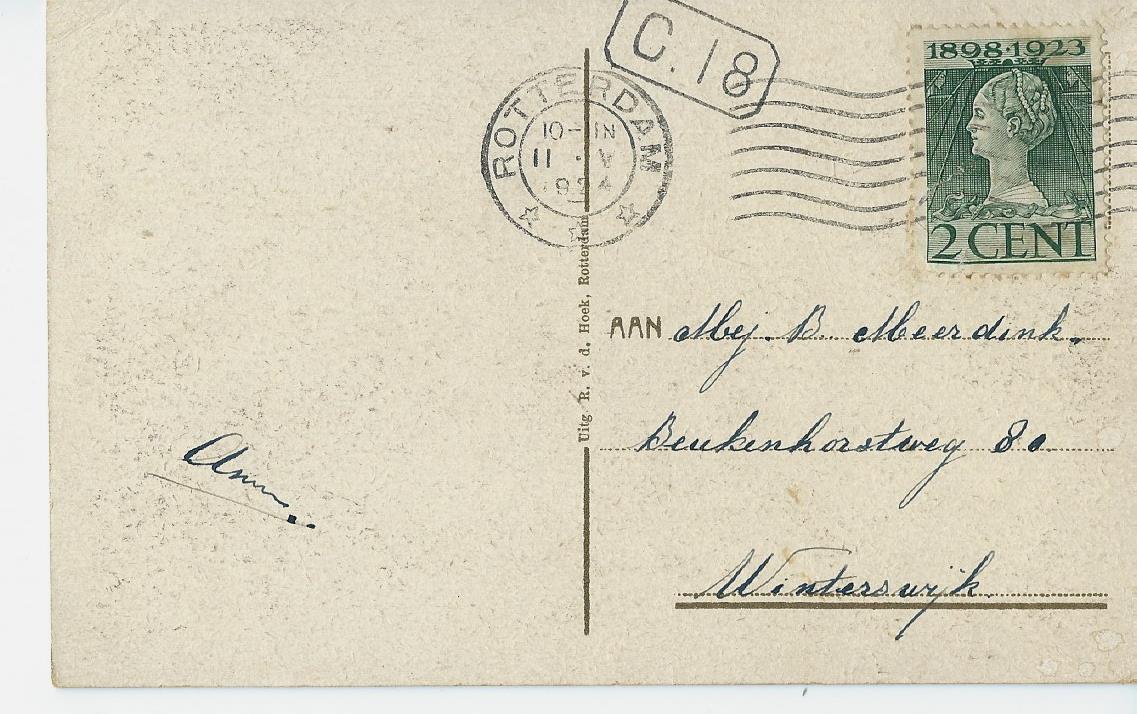 C.18
1898·1923
2 CENT
ROTTERDAM
10-11N
11 · V
1924
Uitg R. v. d. Hoek, Rotterdam
AAN Mej. B. Meerdink.
Beukenhorstweg 80
Winterswijk